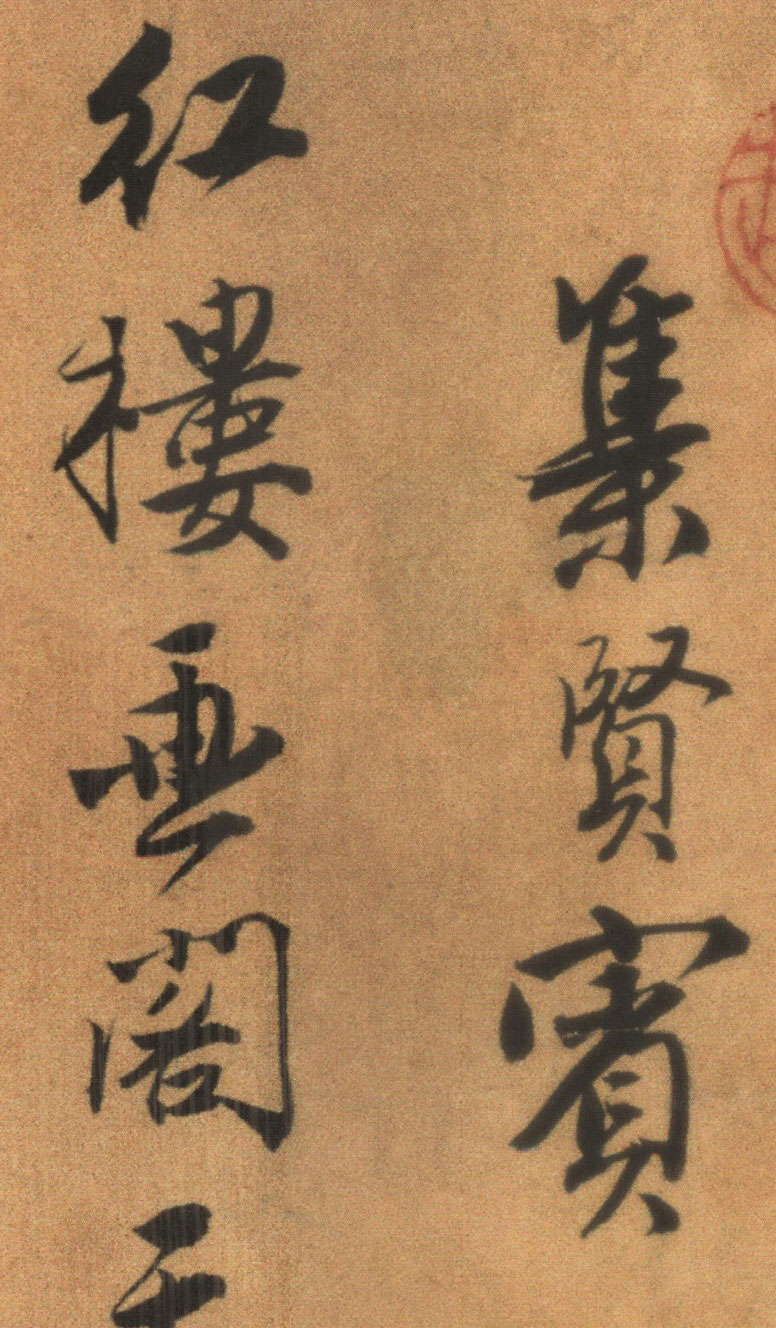 集賢賓
紅樓畫閣